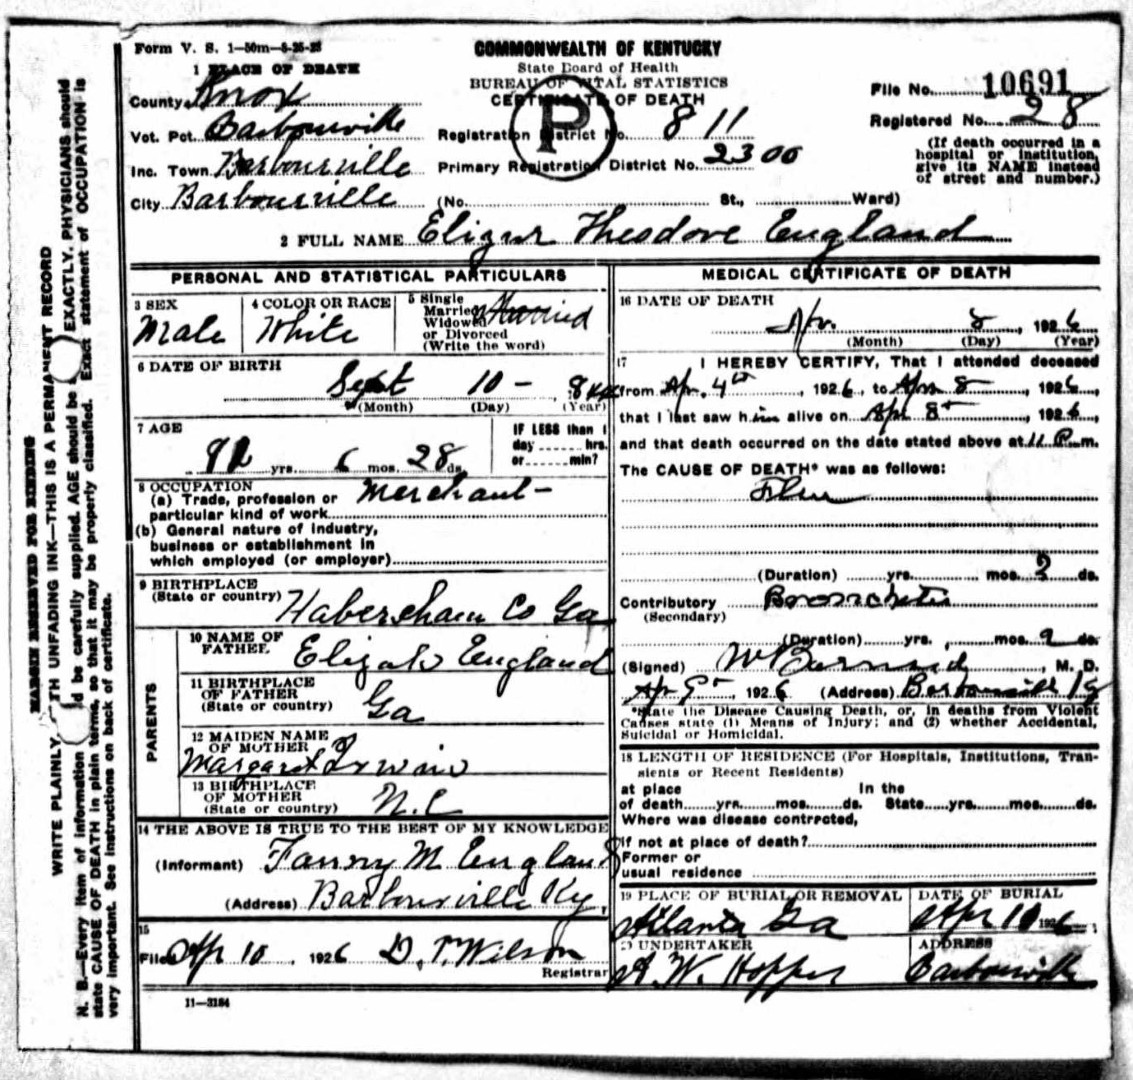 Form V. S. 1—50m—8-25-25
COMMONWEALTH OF KENTUCKY
State Board of Health
BUREAU OF VITAL STATISTICS
CERTIFICATE OF DEATH
P
File No. 10691
Registered No. 28
(If death occurred in a
hospital or institution,
give its NAME instead
of street and number.)
1 PLACE OF DEATH
County Knox
Vot. Pct. Barbourville
Registration District No. 811
Inc. Town Barbourville
Primary Registration District No. 2300
City Barbourville (No. St., Ward)
2 FULL NAME Elizur Theodore England
PERSONAL AND STATISTICAL PARTICULARS
3 SEX Male
4 COLOR OR RACE White
5 Single
Married
Widowed
or Divorced
(Write the word)
Married
6 DATE OF BIRTH
Sept 10 -
(Month) (Day) (Year)
7 AGE
yrs. 6 mos. 28 ds.
IF LESS than 1
day hrs.
or min?
8 OCCUPATION
(a) Trade, profession or
particular kind of work Merchant -
(b) General nature of industry,
business or establishment in
which employed (or employer)
9 BIRTHPLACE
(State or country) Habersham Co Ga
PARENTS
10 NAME OF
FATHER Elizah England
11 BIRTHPLACE
OF FATHER
(State or country) Ga
12 MAIDEN NAME
OF MOTHER
Margaret Irwin
13 BIRTHPLACE
OF MOTHER
(State or country) N.C
14 THE ABOVE IS TRUE TO THE BEST OF MY KNOWLEDGE
(Informant) Fanny M England
(Address) Barbourville Ky.
15
Filed Apr 10, 1926 D. T. Wilson
Registrar
11—3184
MEDICAL CERTIFICATE OF DEATH
16 DATE OF DEATH
Apr. 8, 1926
(Month) (Day) (Year)
17 I HEREBY CERTIFY, That I attended deceased
from Apr. 4th, 1926, to Apr 8, 1926,
that I last saw him alive on Apr 8th, 1926,
and that death occurred on the date stated above at 11 P.m.
The CAUSE OF DEATH* was as follows:
Flu
(Duration) yrs. mos. ds.
Contributory Bronchitis
(Secondary)
(Duration) yrs. mos. ds.
(Signed) W Burnside, M. D.
Apr 9th, 1926 (Address) Barbourville Ky
*State the Disease Causing Death, or, in deaths from Violent
Causes state (1) Means of Injury; and (2) whether Accidental,
Suicidal or Homicidal.
18 LENGTH OF RESIDENCE (For Hospitals, Institutions, Tran-
sients or Recent Residents)
at place In the
of death yrs. mos. ds. State yrs. mos. ds.
Where was disease contrrcted,
if not at place of death?
Former or
usual residence
19 PLACE OF BURIAL OR REMOVAL
Atlanta Ga
DATE OF BURIAL
Apr 10 1926
20 UNDERTAKER
A. W. Hopper
ADDRESS
Barbourville
MARGIN RESERVED FOR BINDING
WRITE PLAINLY, WITH UNFADING INK—THIS IS A PERMANENT RECORD
N. B.—Every item of information should be carefully supplied. AGE should be EXACTLY. PHYSICIANS should
state CAUSE OF DEATH in plain terms, so that it may be properly classified. Exact statement of OCCUPATION is
very important. See instructions on back of certificate.